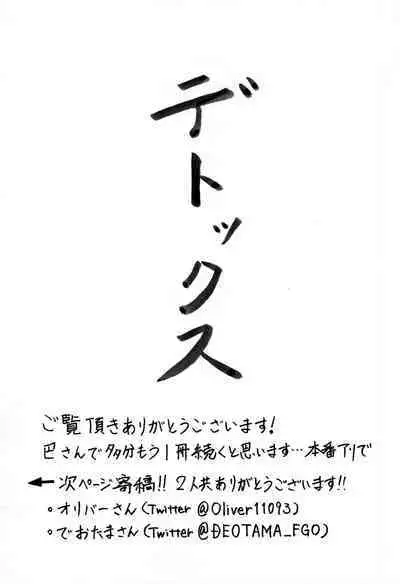 デトックス
ご覧頂きありがとうございます!
巴さんで多分もう1冊続くと思います…本番アリで
← 次ページ寄稿!! 2人共ありがとうございます!!
。オリバーさん(Twitter @Oliver11093)
。でおたまさん(Twitter @DEOTAMA_FGO)